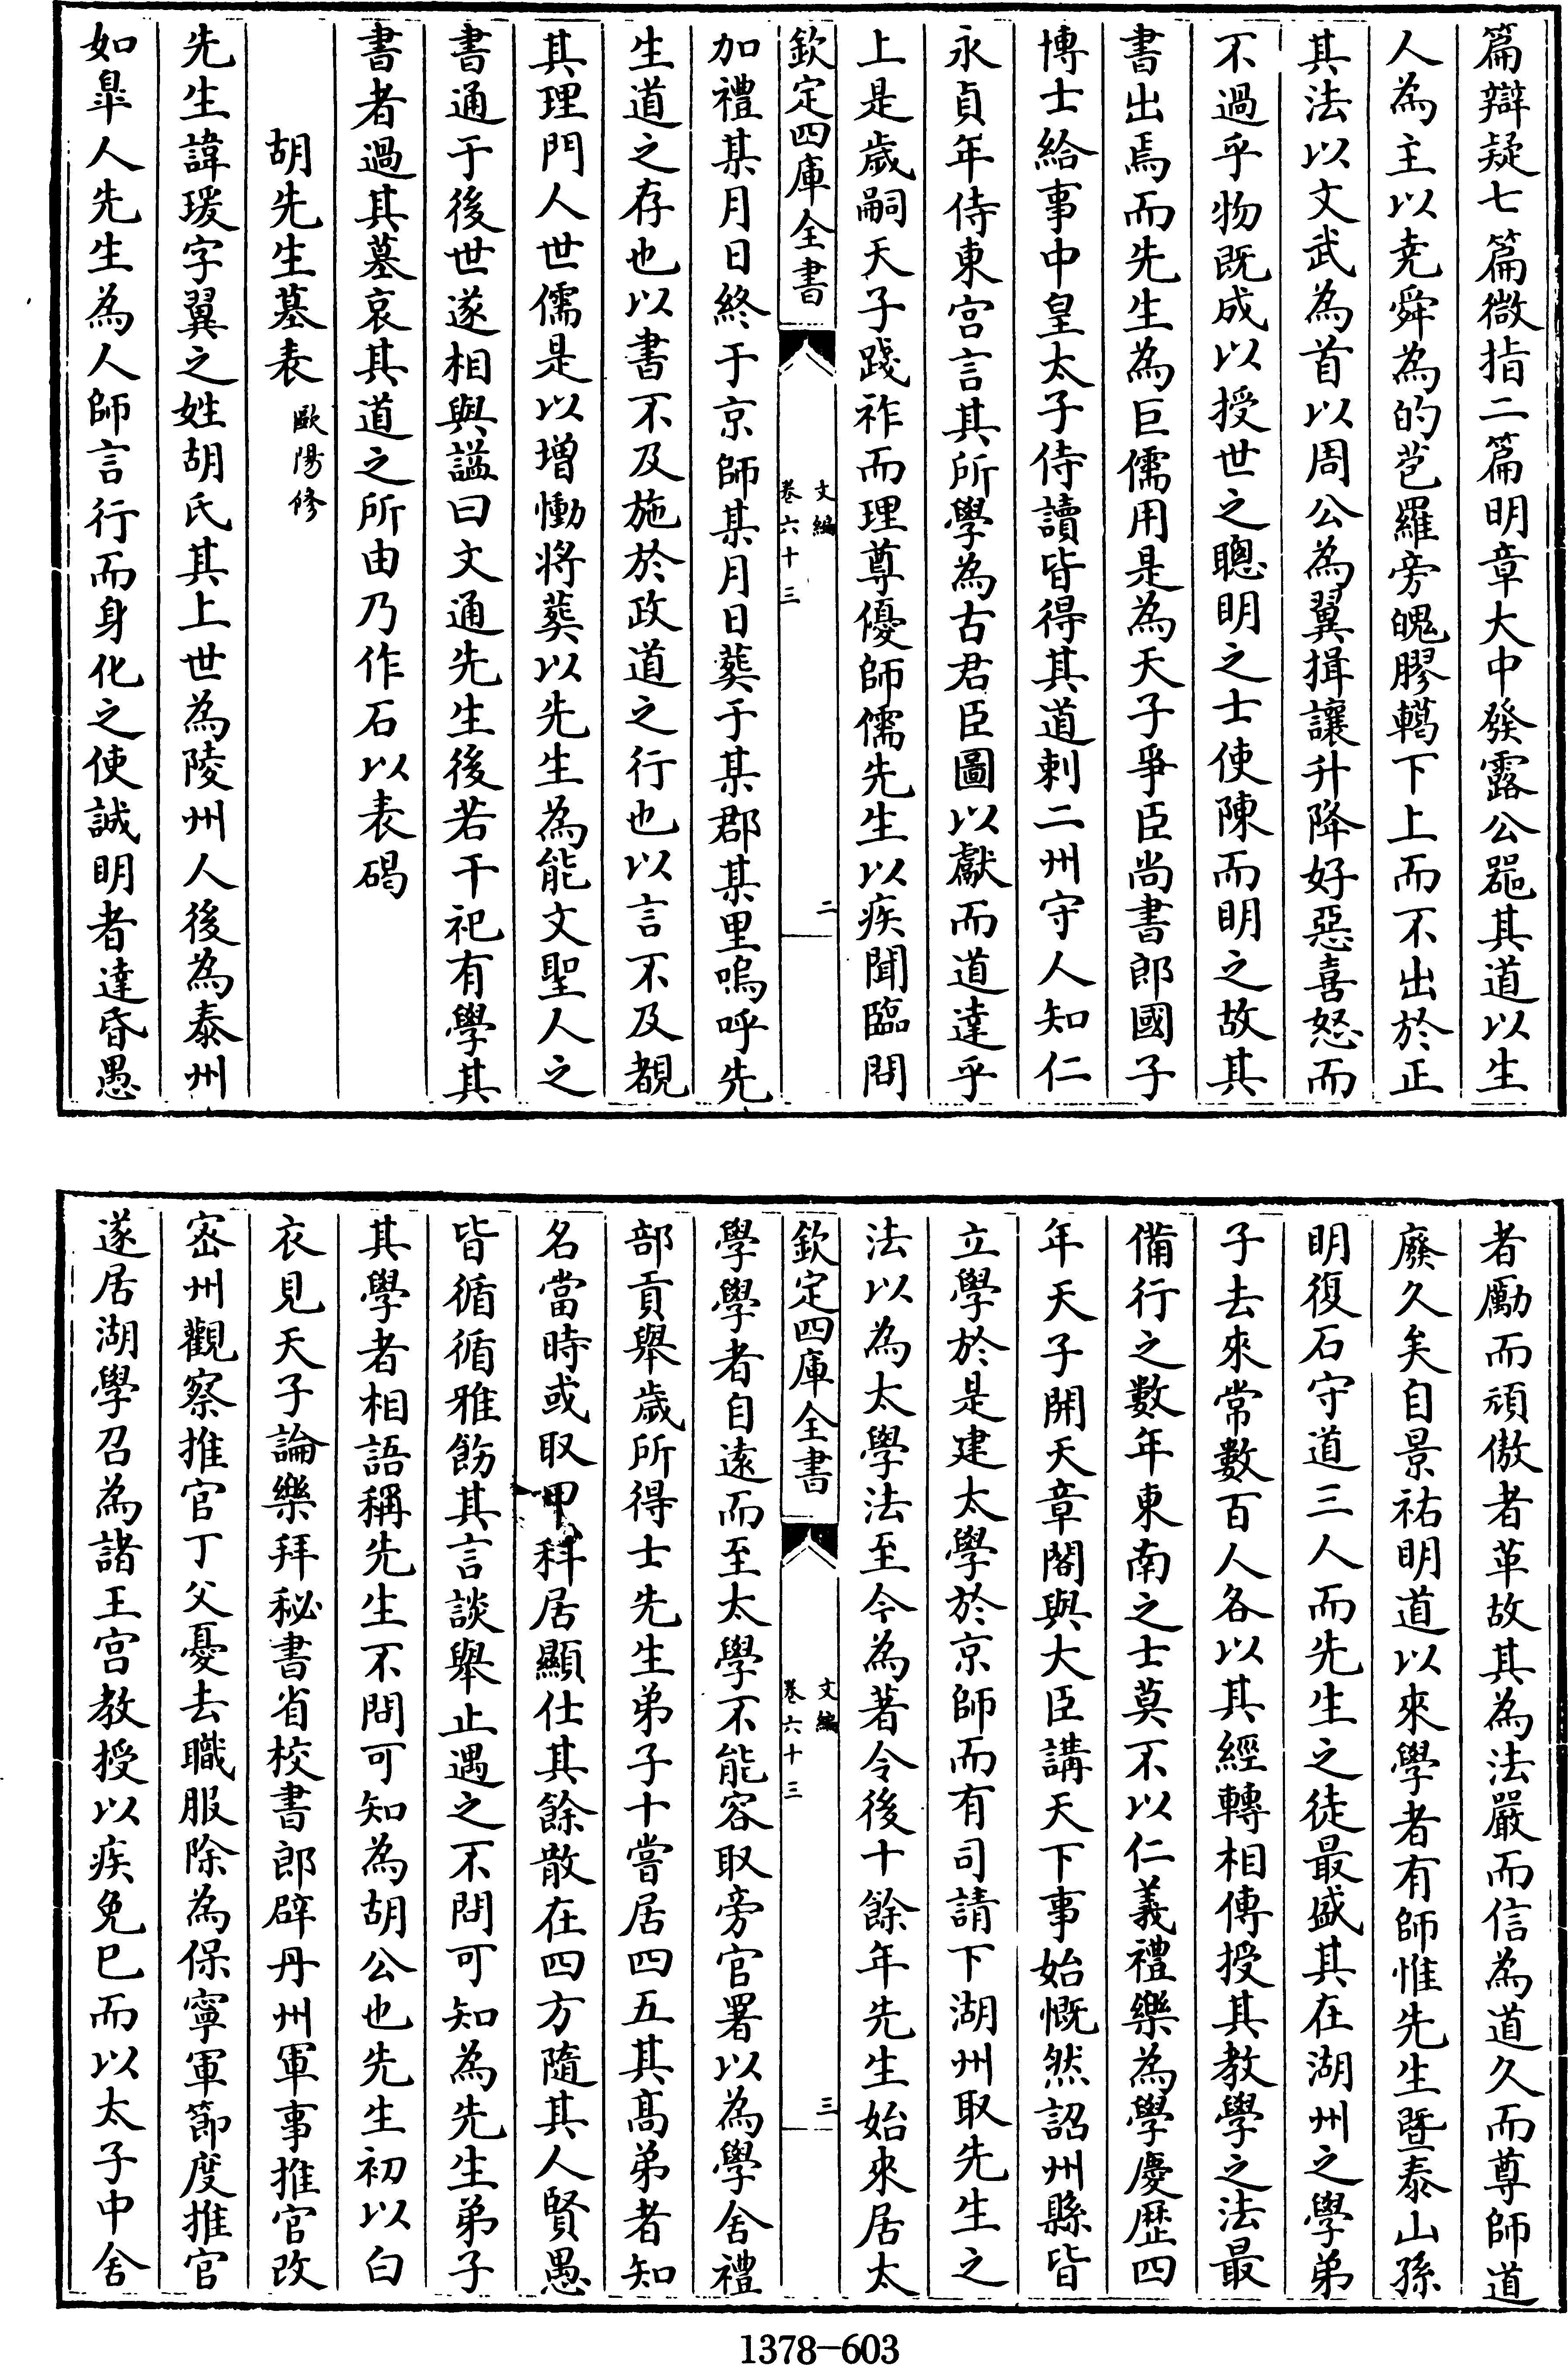 篇辯疑七篇微指二篇明章大中發露公器其道以生
人為主以堯舜為的苞羅旁魄膠轕下上而不出於正
其法以文武為首以周公為翼揖讓升降好惡喜怒而
不過乎物既成以授世之聰明之士使陳而明之故其
書出焉而先生為巨儒用是為天子爭臣尚書郎國子
博士給事中皇太子侍讀皆得其道刺二州守人知仁
永貞年侍東宮言其所學為古君臣圖以獻而道達乎
上是歲嗣天子踐祚而理尊優師儒先生以疾聞臨問
欽定四庫全書
文編
卷六十三
二
加禮某月日終于京師某月日葬于某郡某里嗚呼先
生道之存也以書不及施於政道之行也以言不及覩
其理門人世儒是以增慟將葬以先生為能文聖人之
書通于後世遂相與諡曰文通先生後若干祀有學其
書者過其墓哀其道之所由乃作石以表碣
胡先生墓表 歐陽修
先生諱瑗字翼之姓胡氏其上世為陵州人後為泰州
如臯人先生為人師言行而身化之使誠明者達昏愚
者勵而頑傲者革故其為法嚴而信為道久而尊師道
廢久矣自景祐明道以來學者有師惟先生暨泰山孫
明復石守道三人而先生之徒最盛其在湖州之學弟
子去來常數百人各以其經轉相傳授其教學之法最
備行之數年東南之士莫不以仁義禮樂為學慶歴四
年天子開天章閣與大臣講天下事始慨然詔州縣皆
立學於是建太學於京師而有司請下湖州取先生之
法以為太學法至今為著令後十餘年先生始來居太
欽定四庫全書
文編
卷六十三
三
學學者自遠而至太學不能容取旁官署以為學舍禮
部貢舉歲所得士先生弟子十嘗居四五其高弟者知
名當時或取甲科居顯仕其餘散在四方隨其人賢愚
皆循循雅飭其言談舉止遇之不問可知為先生弟子
其學者相語稱先生不問可知為胡公也先生初以白
衣見天子論樂拜秘書省校書郎辟丹州軍事推官改
密州觀察推官丁父憂去職服除為保寧軍節度推官
遂居湖學召為諸王宮教授以疾免巳而以太子中舍
1378-603